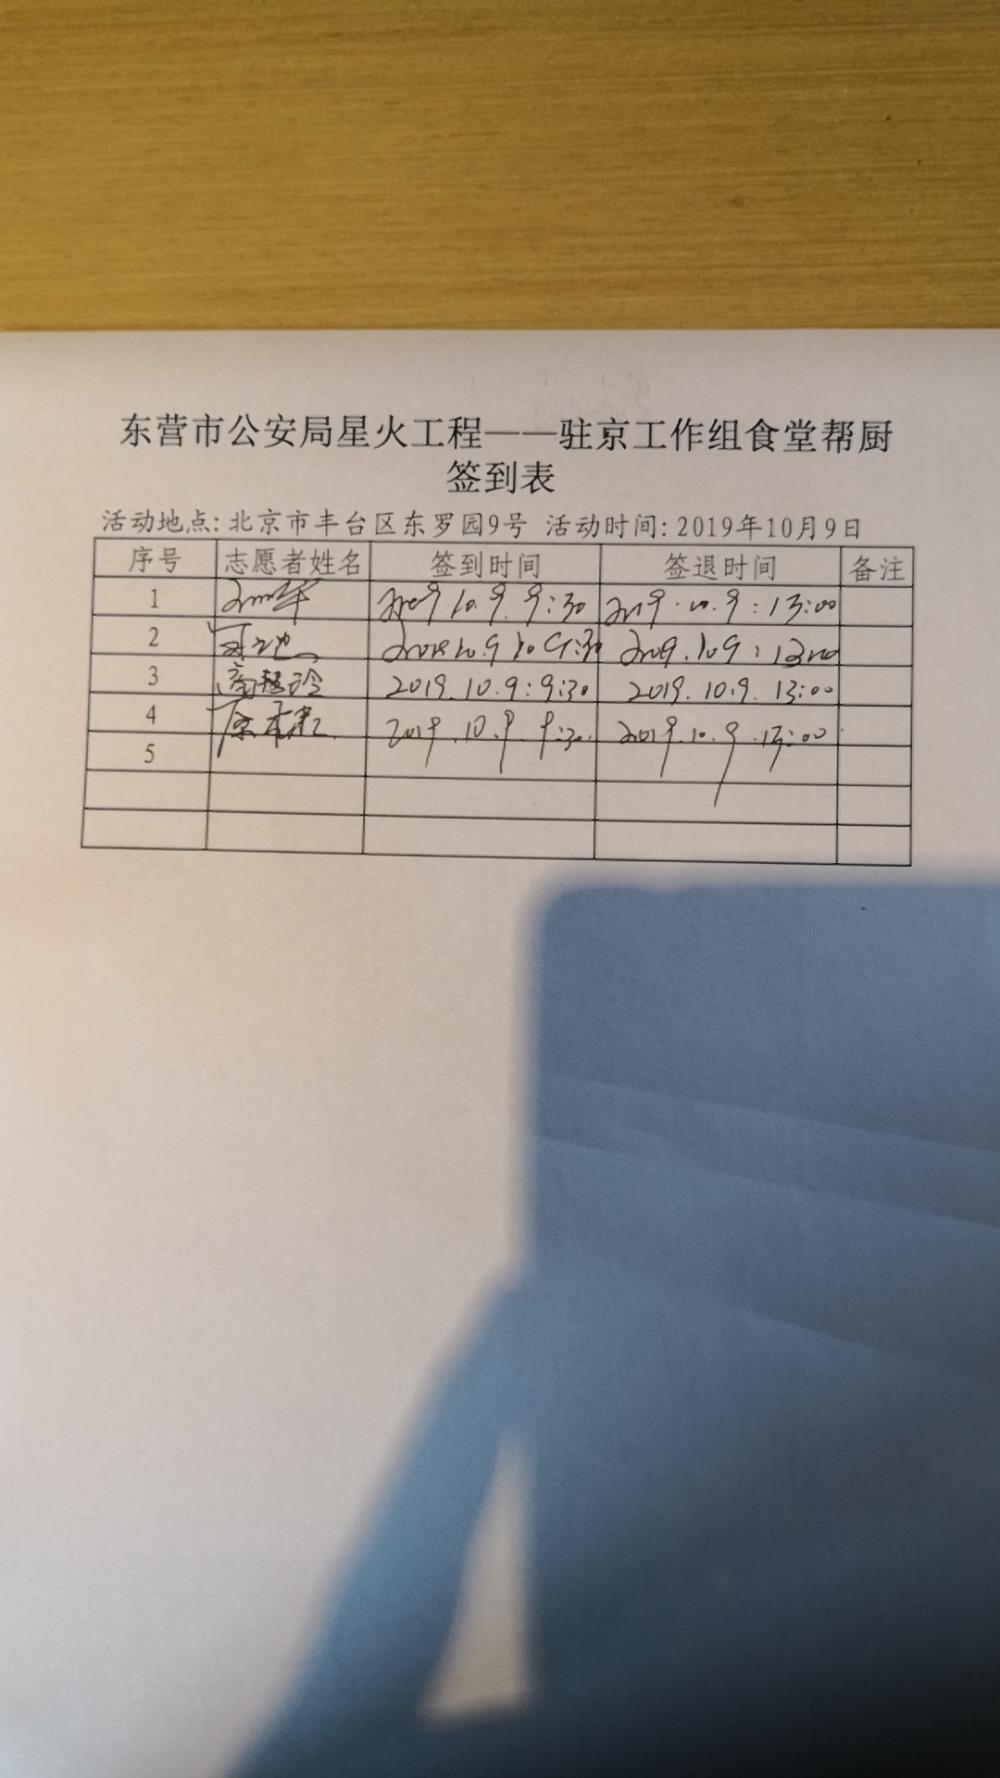 东营市公安局星火工程——驻京工作组食堂帮厨
签到表
活动地点: 北京市丰台区东罗园9号 活动时间: 2019年10月9日
序号 志愿者姓名 签到时间 签退时间 备注
1 2019 10.9. 9:30 2019.10.9:13:00
2 2019.10.9:13:00
3 2019.10.9:9:30 2019.10.9.13:00
4 2019.10.9 9:30. 2019.10.9.13:00
5